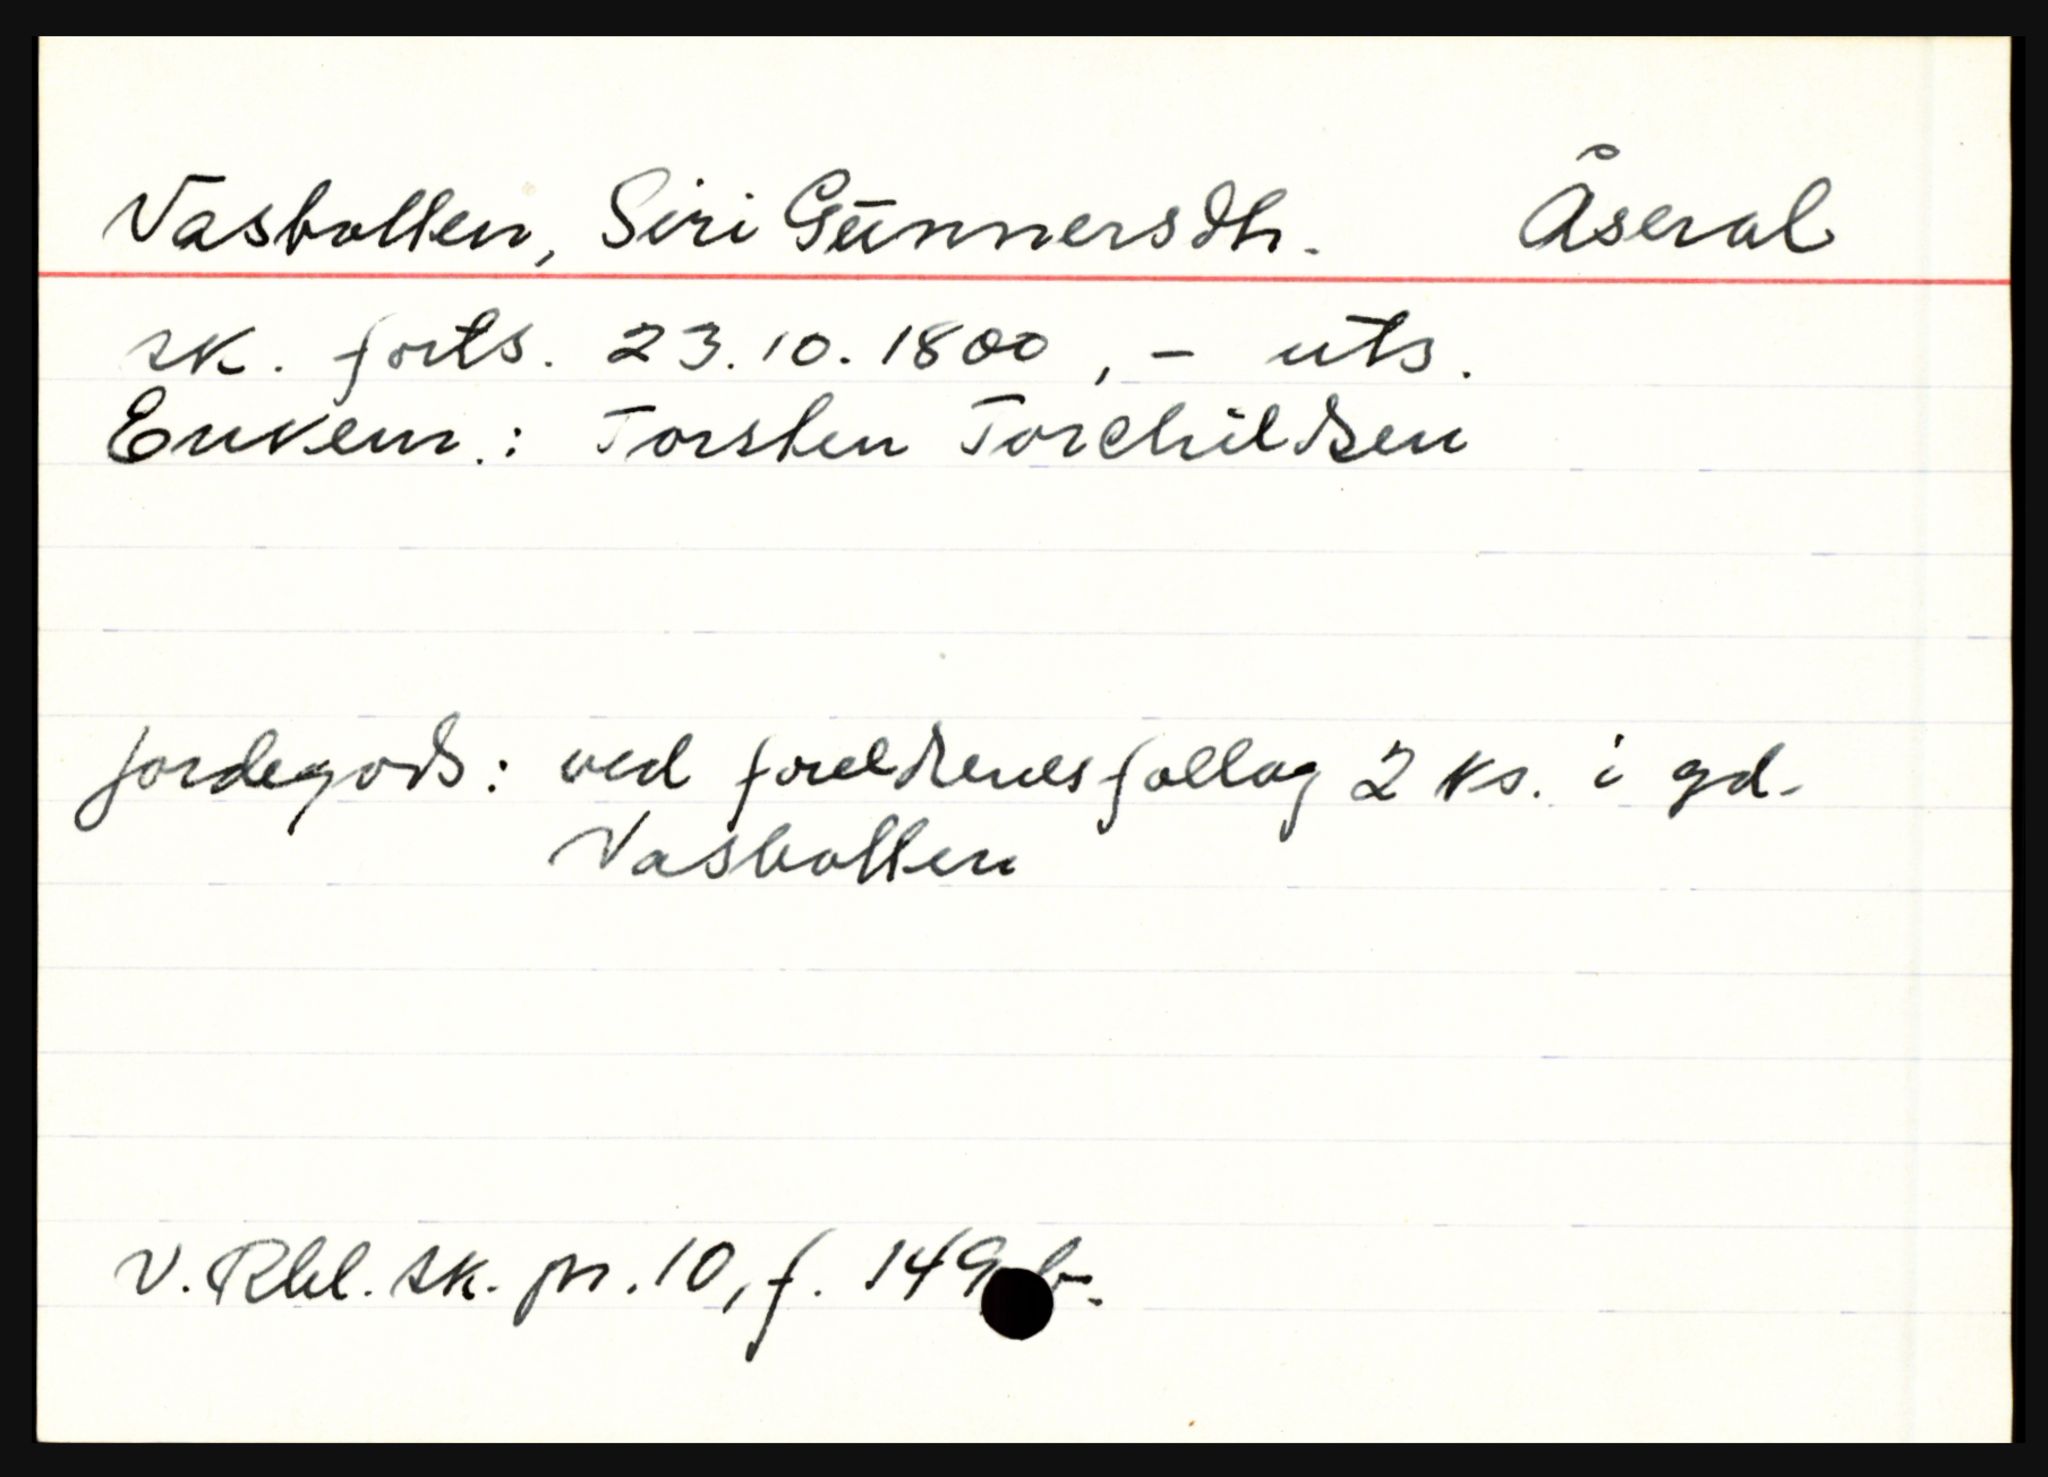 Vasbotten, Siri Gunnersdtr. Åseral
sk. forts. 23.10.1800, - uts.
Enkem.: Torsten Torchildsen
Jordegods: ved foreldrenes follag 2 ks. i gd.
Vasbotten
V. Rbl. sk. pr. 10, f. 149 b.